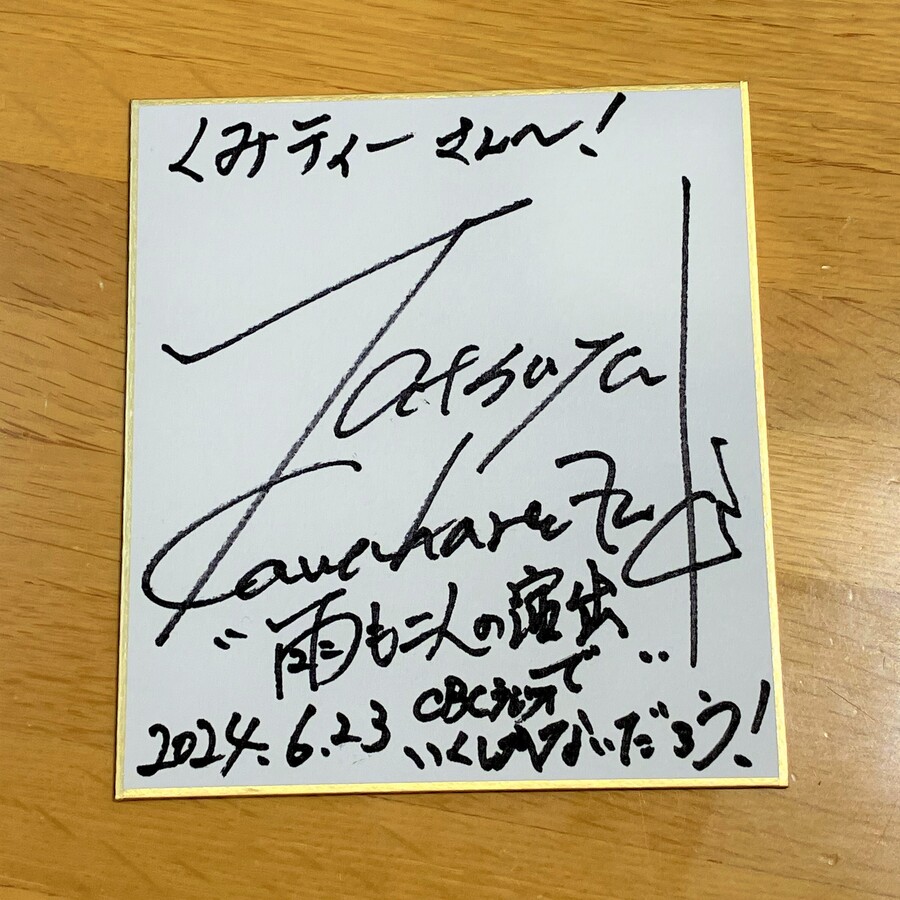 くみティー さん〜!
Tatsuya
Kawaharazuka
"雨も二人の演出"
2024.6.23 CBCラジオで
いくしかないだろう!